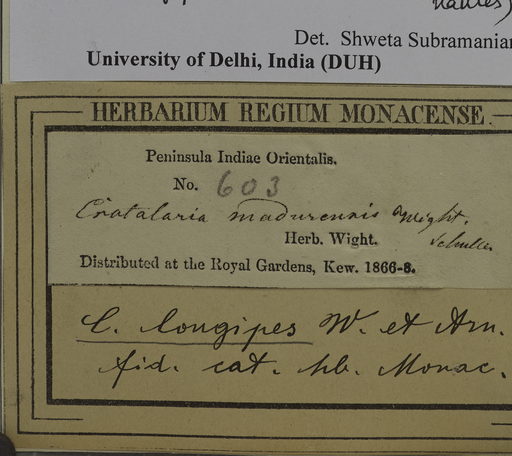 Det. Shweta Subramanian
University of Delhi, India (DUH)
HERBARIUM REGIUM MONACENSE.
Peninsula Indiae Orientalis.
No. 603
Crotalaria madurensis Wight.
Herb. Wight.
Distributed at the Royal Gardens, Kew. 1866-8.
C. longipes W. et Arn.
fid. cat. hb. Monac.